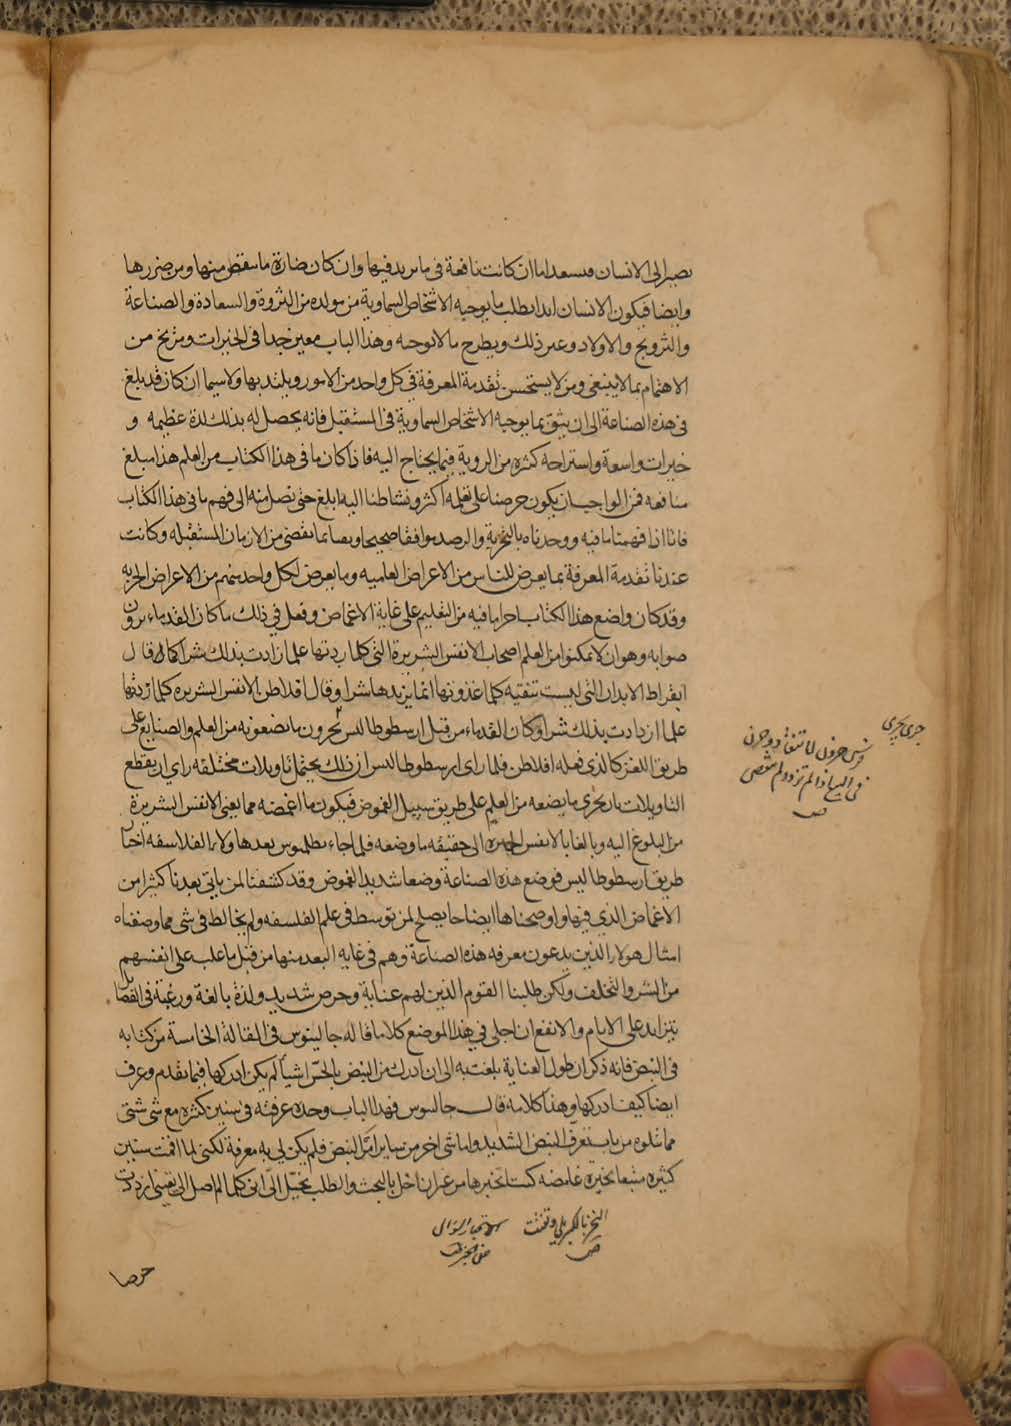 يصير الى الانسان فيسعد اما ان كانت نافعة في ما يزيد فيها وان كان ضارة ما ينقص منها ومن ضررها
وايضا فيكون الانسان ابدا يطلب ما يوجبه الاشخاص السماوية من مولده من الثروة والسعادة والصناعة
والتزويج والاولاد وغير ذلك ويطرح ما لا توجبه وهذا الباب معين جدا في الخيرات ومريح من
الاهتمام بما لا ينبغي ومن لا يستحسن تقدمة المعرفة في كل واحد من الامور ويلتذ بها ولا سيما ان كان قد بلغ
في هذه الصناعة الى ان يثق بما يوجبه الاشخاص السماوية في المستقبل فانه يحصل له بذلك لذة عظيمه و
خيرات واسعة واستراحة كثيره من الروية فيما يحتاج اليه فاذا كان ما في هذا الكتاب من العلم هذا مبلغ
منافعه فمن الواجب ان يكون حرصنا على تعلمه اكثر ونشاطنا اليه ابلغ حتى نصل منه الى فهم ما في هذا الكتاب
فانا اذا فهمنا ما فيه ووجدناه بالتجربة والرصد موافقا صحيحا وبصانا مقتضى من الازمان المستقبله وكانت
عندنا تقدمة المعرفة بما يعرض للناس من الاعراض العامية وما يعرض لكل واحد منهم من الاعراض الجزيه
وقد كان واضع هذا الكتاب اجرا ما فيه من التعليم على غاية الاغماض وفعل في ذلك ما كان القدماء يرون
صوابه وهو ان لا يمكنوا من العلم اصحاب الانفس الشريرة التي كلما زدتها علما زادت بذلك شرا كما قال
ابقراط الابدان التي ليست بنقية كلما غذوتها انما يزيدها شرا وقال افلاطن الانفس الشريره كلما زدتها
علما ازدادت بذلك شرا وكان القدماء من قبل ارسطوطالس يجرون ما يضعونه من العلم والصنايع على
طريق اللغز كالذي فعله افلاطن فلما راى ارسطوطالس ان ذلك يحتمل تاويلات مختلفه راى ان يقطع
التاويلات بان يجري ما يضعه من العلم على طريق سبيل الغموض فيكون ما اغمضه مما يعني الانفس الشريرة
من البلوغ اليه وبالغا بالانفس الخيرة الى حقيقه ما وضعه فلما جاء بطلميوس بعدها ولا من الفلاسفه اختار
طريق ارسطوطاليس فوضع هذه الصناعة وضعا شديد الغموض وقد كشفنا لمن ياتي بعدنا كثيرا من
الاغماض الذي فيها واوضحناها ايضاحا يصلح لمن توسط في علم الفلسفه ولم يخالط في شي مما وصفناه
امثال هولاء الذين يدعون معرفه هذه الصناعة وهم في غايه البعد منها من قبل ما غلب على انفسهم
من الشر والتخلف ولكن طلبنا القوم الذين لهم عناية وحرص شديد ولذة بالغة ورغبة في الفضايل
يتزايد على الايام والانفع ان اجلى في هذا الموضع كلاما قاله جالينوس في المقالة الخامسة من كتابه
في النبض فانه ذكر ان طول العناية بلغت به الى ان ادرك من النبض بالحس اشياء لم يكن ادركها فيما تقدم وعرف
ايضا كيف ادركها وهذا كلامه قال جالنوس فهذا الباب وحده عرفته في سنين كثيره مع شي شتى
مما تتلوه من باب تعرف النبض الشديد واما شي اخر من ساير امر النبض فلم يكن لي به معرفة لكني لما اقمت سنين
كثيره متبعا بخبرة غامضه كنت اختبرها من غير ان اخل بالبحث والطلب يخيل الي اني كلما لم اصل الى بغيتي ازددت
جرى يجرى
في
حرصا